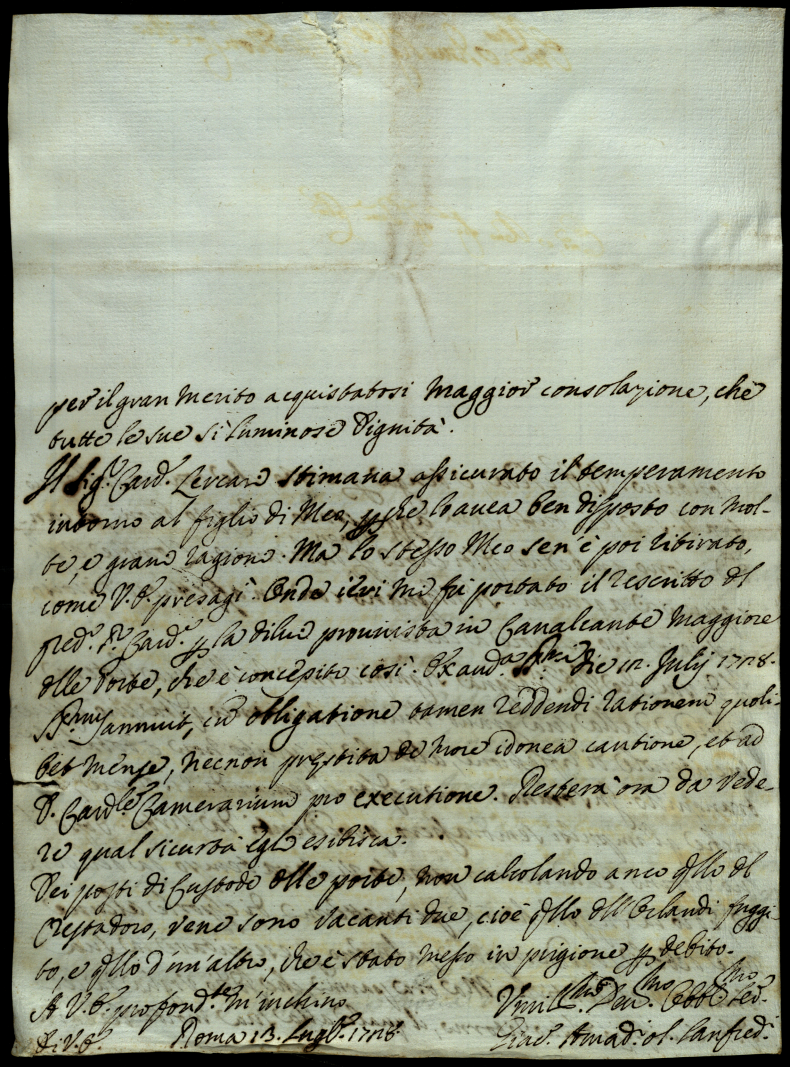 per il gran merito acquistatosi maggior consolazione, che
tutte le sue sì luminose Dignità.
Il Sig.r Card. Lercaro stimava assicurato il temperamento
intorno al figlio di Meo, p che l'avea ben disposto con mol-
te, e grave ragioni. Ma lo stesso Meo sen'è poi ritirato,
come V.E. presagì. Onde ieri mi fu portato il rescritto del
pred.o S.r Card. p la di lui provvista in Cavalcante Maggiore
delle Poste, che è concepito così. Ex aud.a SS.mi die 12. Julij 1728.
SS.mus annuit, cũ obligatione tamen reddendi rationem quoli-
bet mense, necnon prestita de more idonea cautione, et ad
D. Card.lem Camerarium pro executione. Resterà ora da vede-
re qual sicurtà egli esibisca.
Dei posti di Custode delle porte, non calcolando anco qllo del
Crestadoro, vene sono vacanti due, cioè qllo dell'Orlandi fuggi-
to, e qllo d'un'altro, che è stato messo in prigione p debito.
A V.E. profond.te m'inchino
Di V.E. Roma 13. Lugl.o 1728.
Umill.mo Dev.mo Obbl.mo Ser.
Giac. Amad. ol. Lanfred.